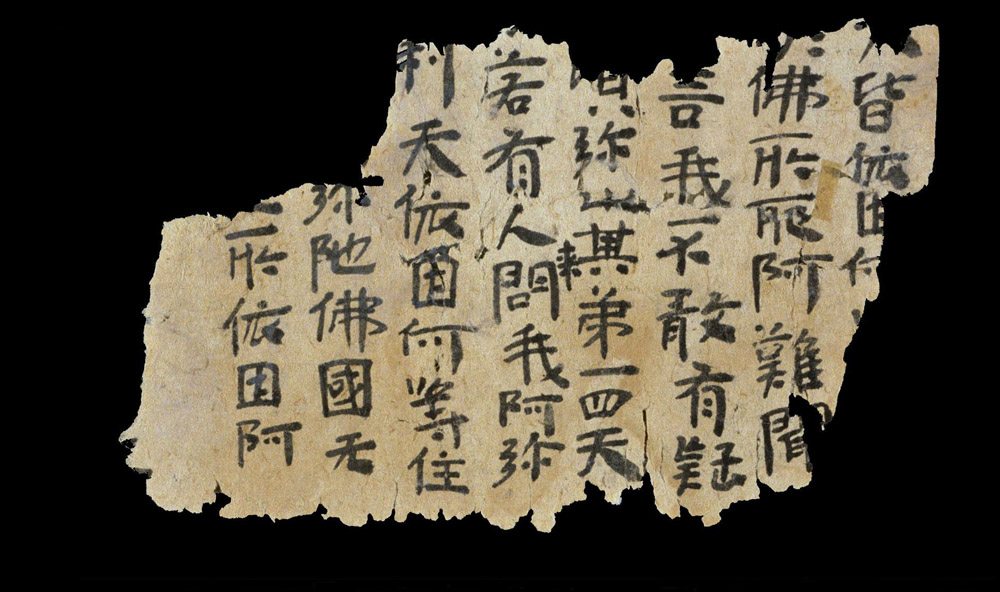 皆依因何
佛所阿難聞
言我不敢有疑
弥山其弟一四天
若有人問我阿弥
利天依因何等住
弥陁佛國无
所依因阿